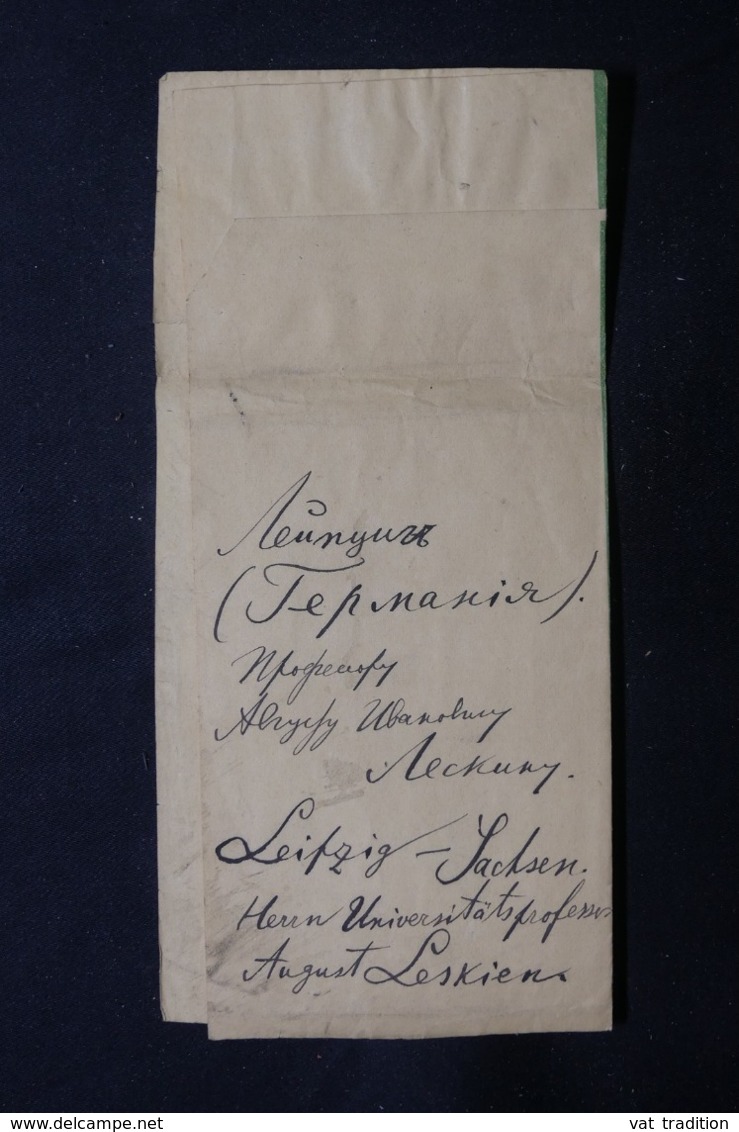 Лейпцигъ
(Германія).
Профессору
Августу Ивановичу
Лескину.
Leipzig – Sachsen.
Herrn Universitätsprofessor
August Leskien.
www.delcampe.net
vat tradition